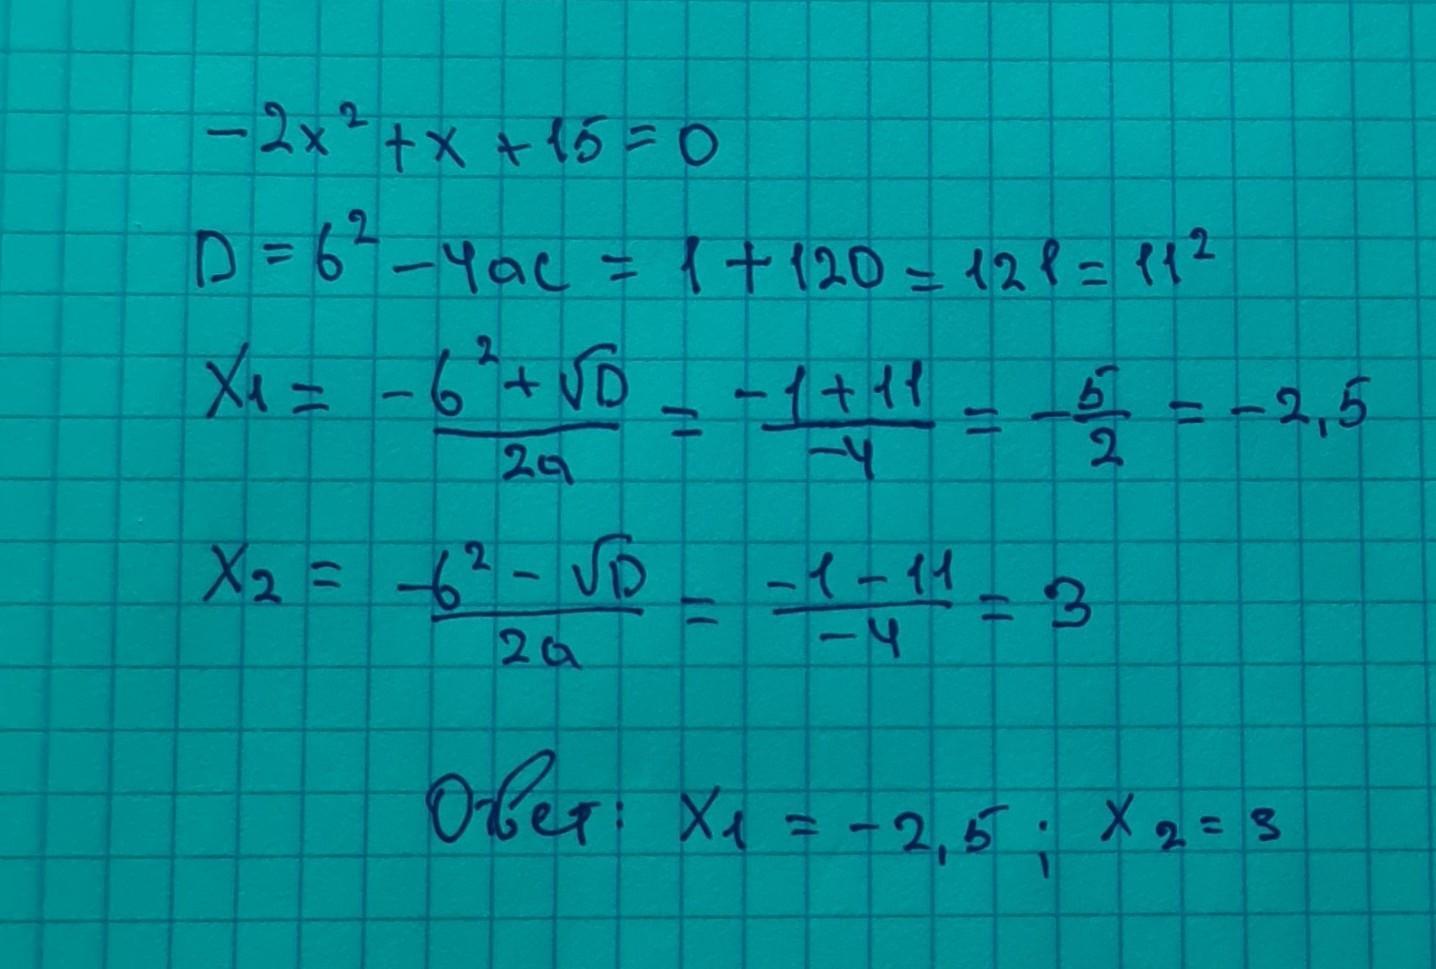 -2x² + x + 15 = 0
D = b² - 4ac = 1 + 120 = 121 = 11²
x₁ = (-b² + √D)/(2a) = (-1 + 11)/(-4) = -5/2 = -2,5
x₂ = (-b² - √D)/(2a) = (-1 - 11)/(-4) = 3
Ответ: x₁ = -2,5 ; x₂ = 3